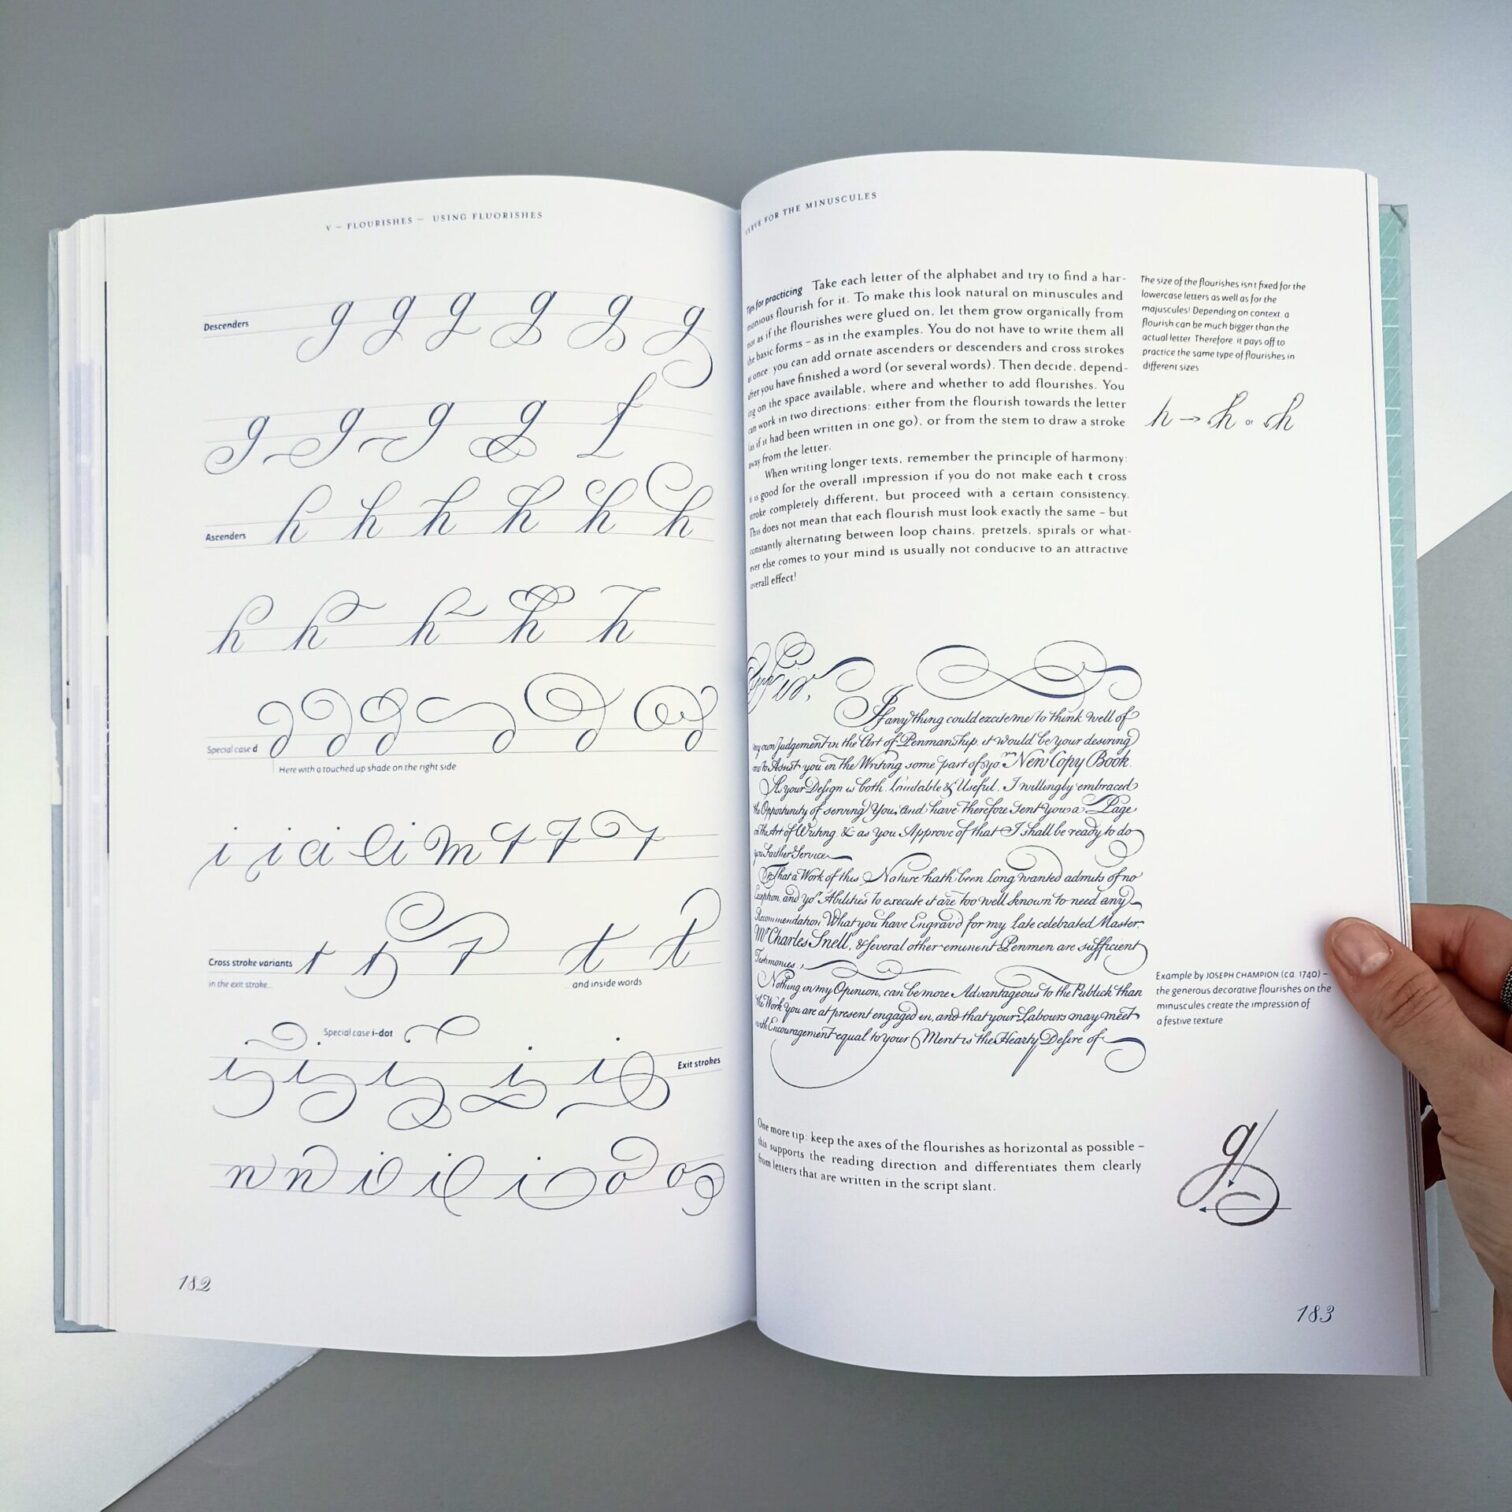 V – FLOURISHES – USING FLUORISHES
Descenders
g g g g g g
g g g g f
Ascenders
h h h h h h
h h h h h
Special case d
d d d d d d
Here with a touched up shade on the right side
i i a i e i m q q q q
Cross stroke variants
in the exit stroke...
t t t t t
... and inside words
Special case i-dot
i i i i i
Exit strokes
n n i i i o o
182
VERVE FOR THE MINUSCULES
Tips for practicing Take each letter of the alphabet and try to find a har-
monious flourish for it. To make this look natural on minuscules and
not as if the flourishes were glued on, let them grow organically from
the basic forms – as in the examples. You do not have to write them all
at once: you can add ornate ascenders or descenders and cross strokes
after you have finished a word (or several words). Then decide, depend-
ing on the space available, where and whether to add flourishes. You
can work in two directions: either from the flourish towards the letter
(as if it had been written in one go), or from the stem to draw a stroke
away from the letter.
When writing longer texts, remember the principle of harmony:
it is good for the overall impression if you do not make each t cross
stroke completely different, but proceed with a certain consistency.
This does not mean that each flourish must look exactly the same – but
constantly alternating between loop chains, pretzels, spirals or what-
ever else comes to your mind is usually not conducive to an attractive
overall effect!
The size of the flourishes isn't fixed for the
lowercase letters as well as for the
majuscules! Depending on context, a
flourish can be much bigger than the
actual letter. Therefore, it pays off to
practice the same type of flourishes in
different sizes.
h → h or h
Sir,
If any thing could excite me to think well of
my own Judgement in the Art of Penmanship, it would be your desiring
me to Assist you in the Writing some part of yor. New Copy Book.
As your Design is both Laudable & Useful, I willingly embraced
the Opportunity of serving You, and have therefore sent you a Page
in the Art of Writing, & as you Approve of that I shall be ready to do
you Farther Service.
That a Work of this Nature hath been Long wanted admits of no
Exception, and yor. Abilities to execute it are too well known to need any
Recommendation. What you have Engrav'd for my Late celebrated Master
Mr. Charles Snell, & several other eminent Penmen are sufficient
Testimonies.
Nothing in my Opinion, can be more Advantageous to the Publick than
the Work you are at present engaged in, and that your Labours may meet
with Encouragement equal to your Merit is the Hearty Desire of
Example by JOSEPH CHAMPION (ca. 1740) –
the generous decorative flourishes on the
minuscules create the impression of
a festive texture
One more tip: keep the axes of the flourishes as horizontal as possible –
this supports the reading direction and differentiates them clearly
from letters that are written in the script slant.
g
183